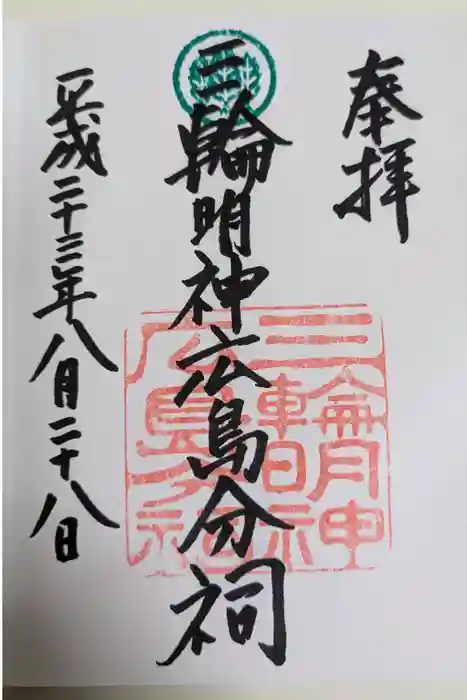 奉拝
三輪明神広島分祠
平成二十三年八月二十八日
三輪明神
広島分祠